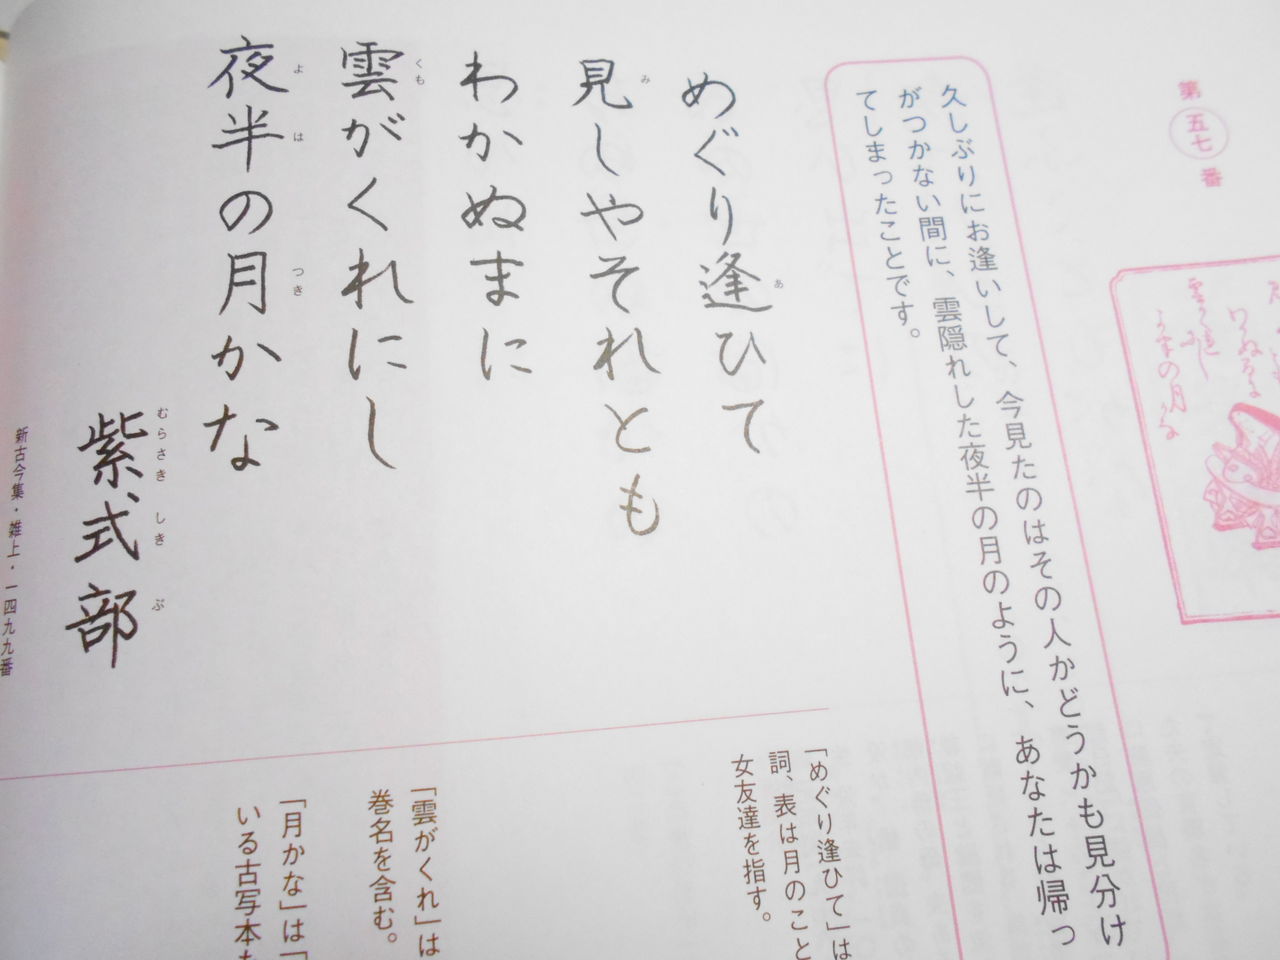 第五七番
久しぶりにお逢いして、今見たのはその人かどうかも見分け
がつかない間に、雲隠れした夜半の月のように、あなたは帰っ
てしまったことです。
めぐり逢ひて
あ
見しやそれとも
み
わかぬまに
雲がくれにし
くも
夜半の月かな
よは
つき
紫式部
むらさきしきぶ
新古今集・雑上・一四九九番
「めぐり逢ひて」は
詞、表は月のこと
女友達を指す。
「雲がくれ」は
巻名を含む。
「月かな」は「
いる古写本も